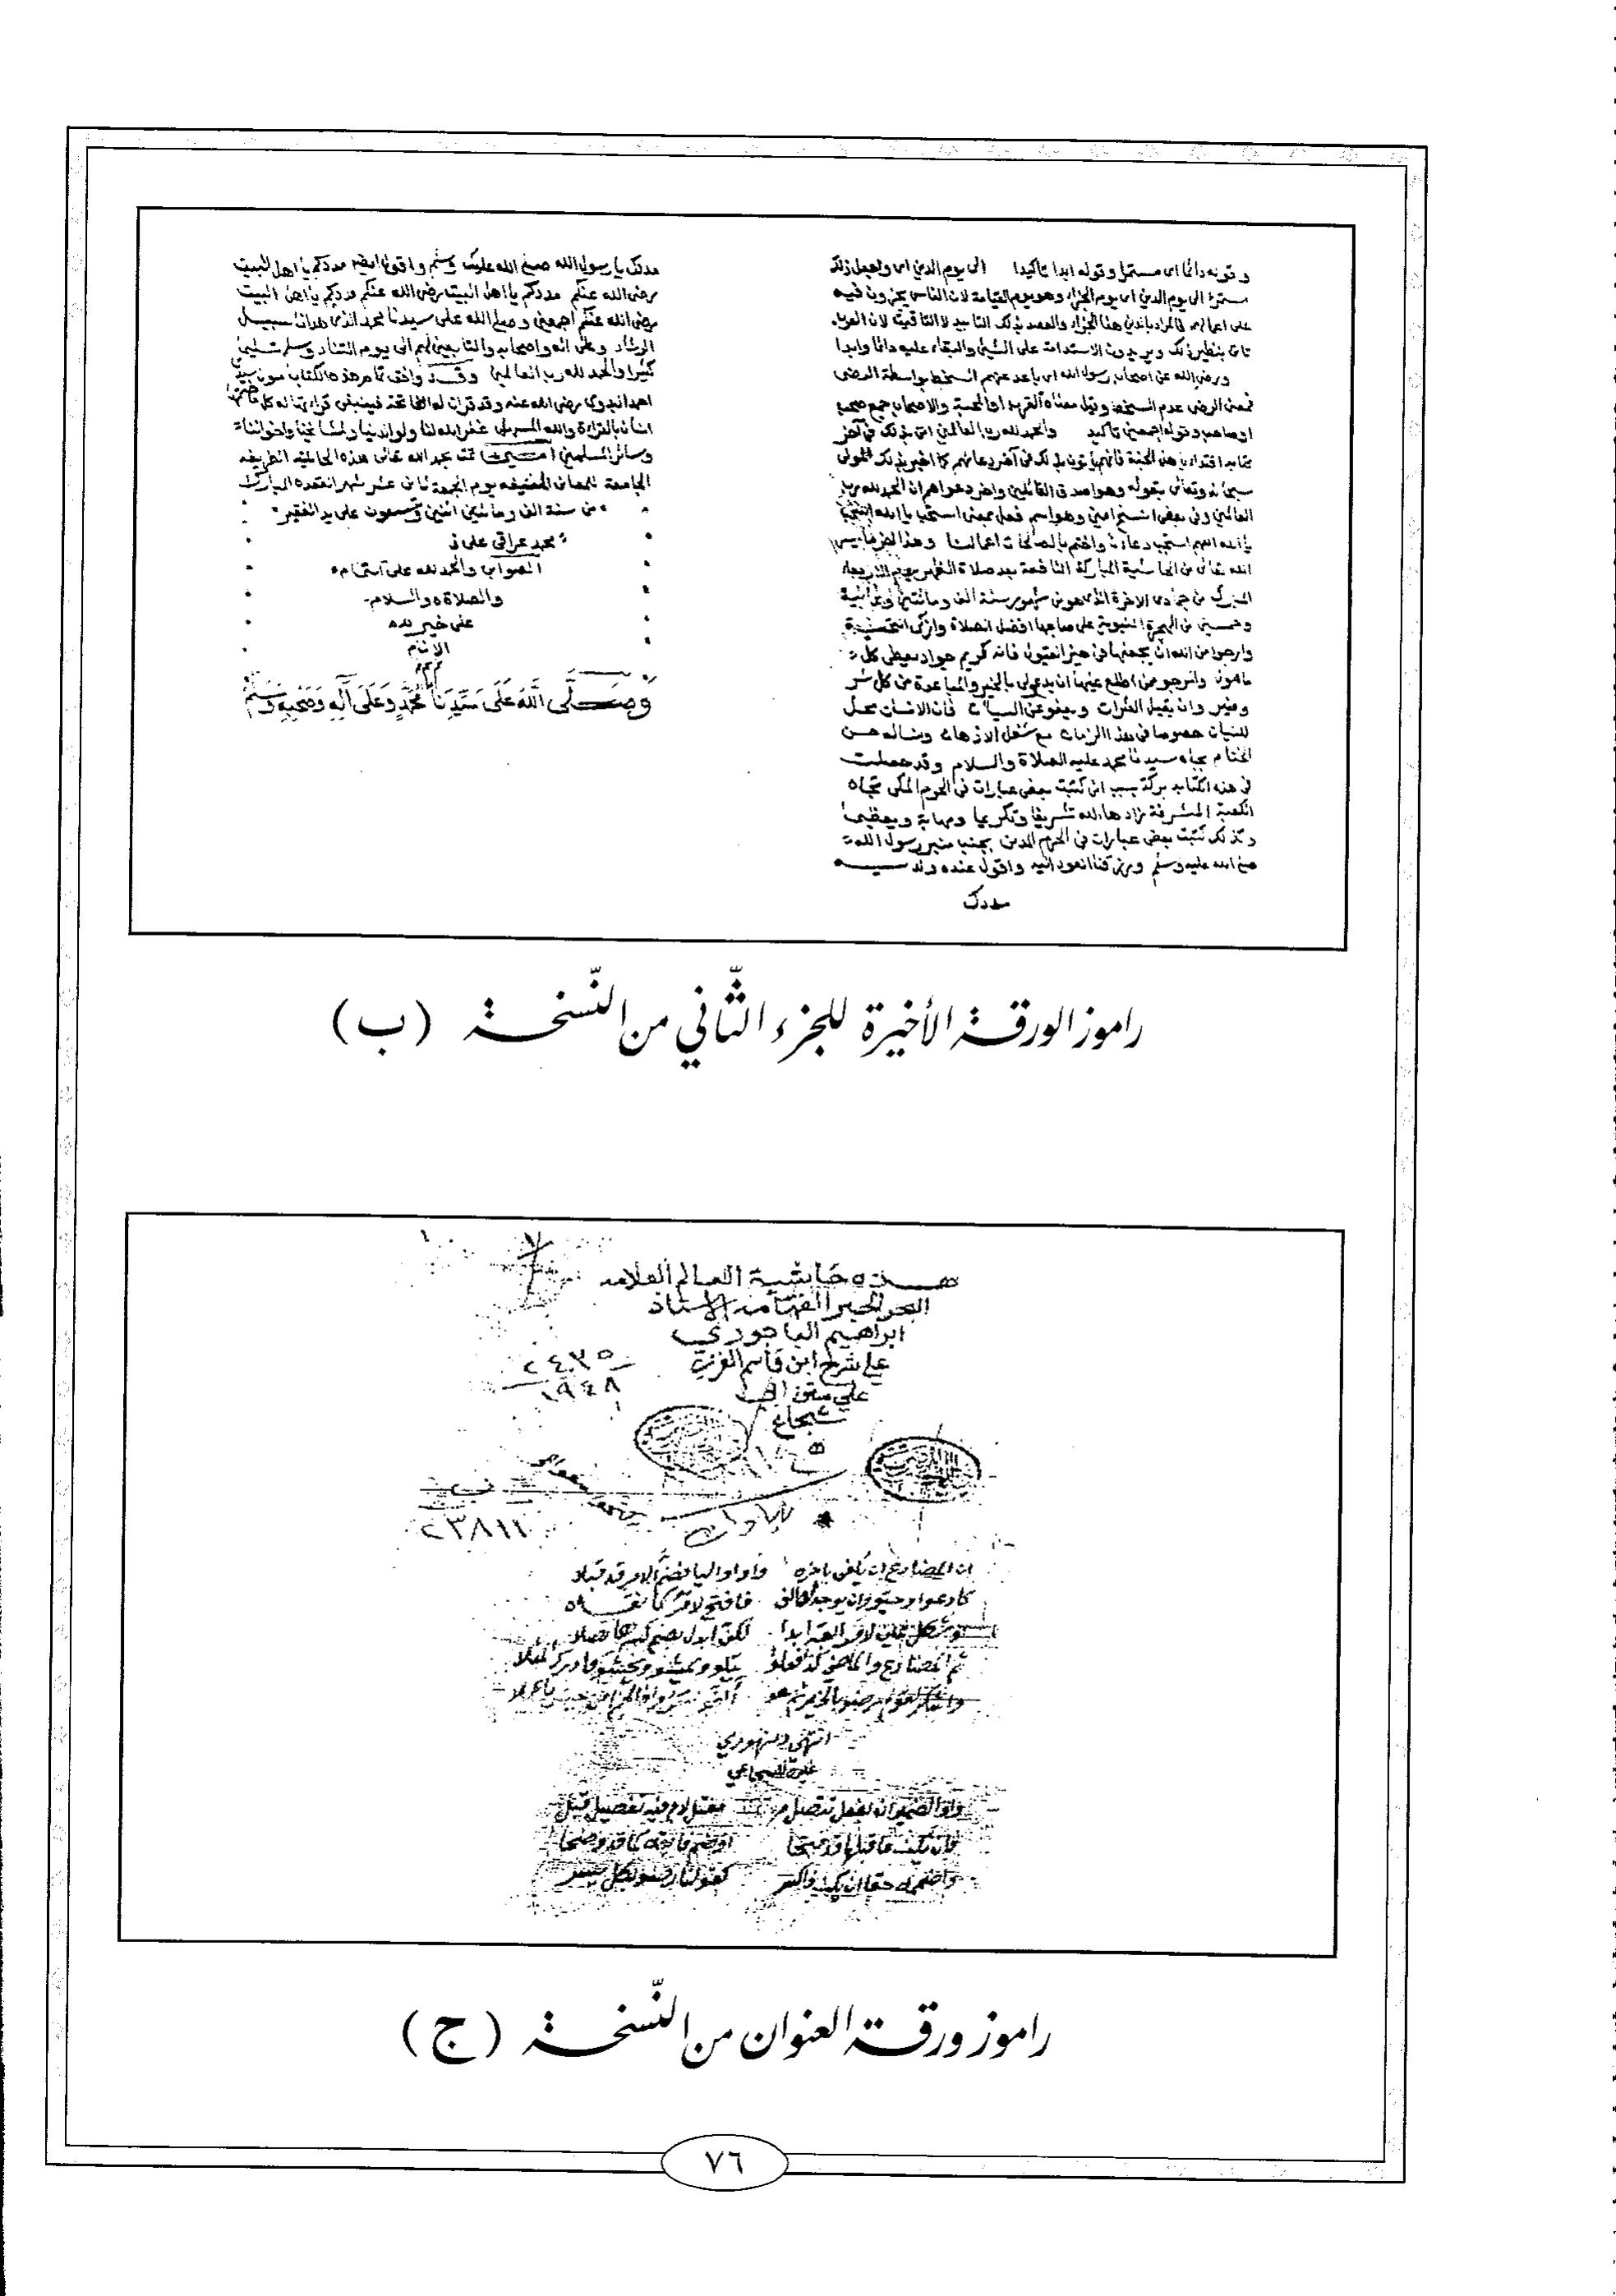 وقوله دائما اى مستمرا وقوله ابدا تأكيدا الى يوم الدين اى واجعل ذلك
مستمرا الى يوم الدين اى يوم الجزاء وهو يوم القيامة لان الناس يجزون فيه
على اعمالهم فالمراد بالدين هنا الجزاء والقصد بذلك التأبيد لا التاقيت لان العرب
تاتى بنظير ذلك ويريدون الاستدامة على الشيئ والبقاء عليه دائما وابدا
ورضى الله عن اصحاب رسول الله اى باعد عنهم السخط بواسطة الرضى
فمعنى الرضى عدم السخط وقيل معناه القرب او المحبة والاصحاب جمع صحب
او صاحب وقوله اجمعين تأكيد والحمد لله رب العالمين اتى بذلك فى آخر
كتابه اقتداء باهل الجنة فانهم ياتون بذلك فى آخر دعائهم كما اخبر بذلك المولى
سبحانه وتعالى بقوله وهو اصدق القائلين واخر دعواهم ان الحمد لله رب
العالمين وفى بعض النسخ امين وهو اسم فعل بمعنى استجب يا الله
يا الله اللهم استجب دعاءنا واختم بالصالحات اعمالنا وهذا اخر ما يسر
الله تعالى من الحاشية المباركة النافعة بعد صلاة الظهر يوم الاربعاء
المبارك من جمادى الاخرة الذى هو من شهور سنة الف ومائتين وثمانية
وخمسين من الهجرة النبوية على صاحبها افضل الصلاة وازكى التحية
وارجو من الله ان يجعلها فى حيز القبول فانه كريم جواد يعطى كل
مامول وارجو ممن اطلع عليها ان يدعو لى بالخير والمباعدة من كل شر
وضير وان يقيل العثرات ويعفو عن السيآت فان الانسان محل
للنسيان خصوصا فى هذا الزمان مع شغل الاذهان ونساله حسن
الختام بجاه سيدنا محمد عليه الصلاة والسلام وقد حصلت
فى هذه الكتاب بركة بسبب انى كتبت بعض عبارات فى الحرم المكى تجاه
الكعبة المشرفة زادها الله تشريفا وتكريما ومهابة وتعظيما
وكذلك كتبت بعض عبارات فى الحرم المدنى بجنب منبر رسول الله
صلى الله عليه وسلم ورزقنا العود اليه واقول عنده
مددك
مددك يا رسول الله صلى الله عليك وسلم واقول ايضا مددكم يا اهل البيت
رضى الله عنكم مددكم يا اهل البيت رضى الله عنكم مددكم يا اهل البيت
رضى الله عنكم اجمعين وصلى الله على سيدنا محمد الذى هدانا سبيل
الرشاد وعلى اله واصحابه والتابعين لهم الى يوم التناد وسلم تسليما
كثيرا والحمد لله رب العالمين وقد وافق تمام هذه الكتاب مولد سيدى
احمد البدوى رضى الله عنه وقد قرأت له الفاتحة فينبغى قراءتها له كل ما
انسان بالقراءة والله المسؤل غفر الله لنا ولوالدينا ولمشايخنا واخواننا
وسائر المسلمين امين تمت بحمد الله تعالى هذه الحاشية الظريفه
الجامعة للمعانى المنيفه يوم الجمعة ثانى عشر شهر القعده المبارك
من سنة الف ومائتين اثنين وتسعون على يد الفقير
محمد عراقى على فى
الصواب والحمد لله على التمام
والصلاة والسلام
على خير
الانام
وَصَلَّى اللَّهُ عَلَى سَيِّدِنَا مُحَمَّدٍ وَعَلَى آلِهِ وَصَحْبِهِ وَسَلَّمْ
راموز الورقة الأخيرة للجزء الثّاني من النّسخة (ب)
هذه حاشية العالم العلامه
البحر الحبر الفهامه الاستاذ
ابراهيم الباجورى
على شرح ابن قاسم الغزى
على متن ابى
شجاع
٢٤٣٥
١٩٤٨
٢٣٨١١
ان المضارع ان يلفى باخره واو او اليا فضم الامر قد قبلا
ثم المضارع والماضى
انتهى دمنهوري
واو الضمير ان بفعل تتصل معتل لام فيه تفصيل قبل
فان يكن ما قبلها قد فتحا او ضم فابقه كما قد وضحا
راموز ورقة العنوان من النّسخة (ج)
٧٦